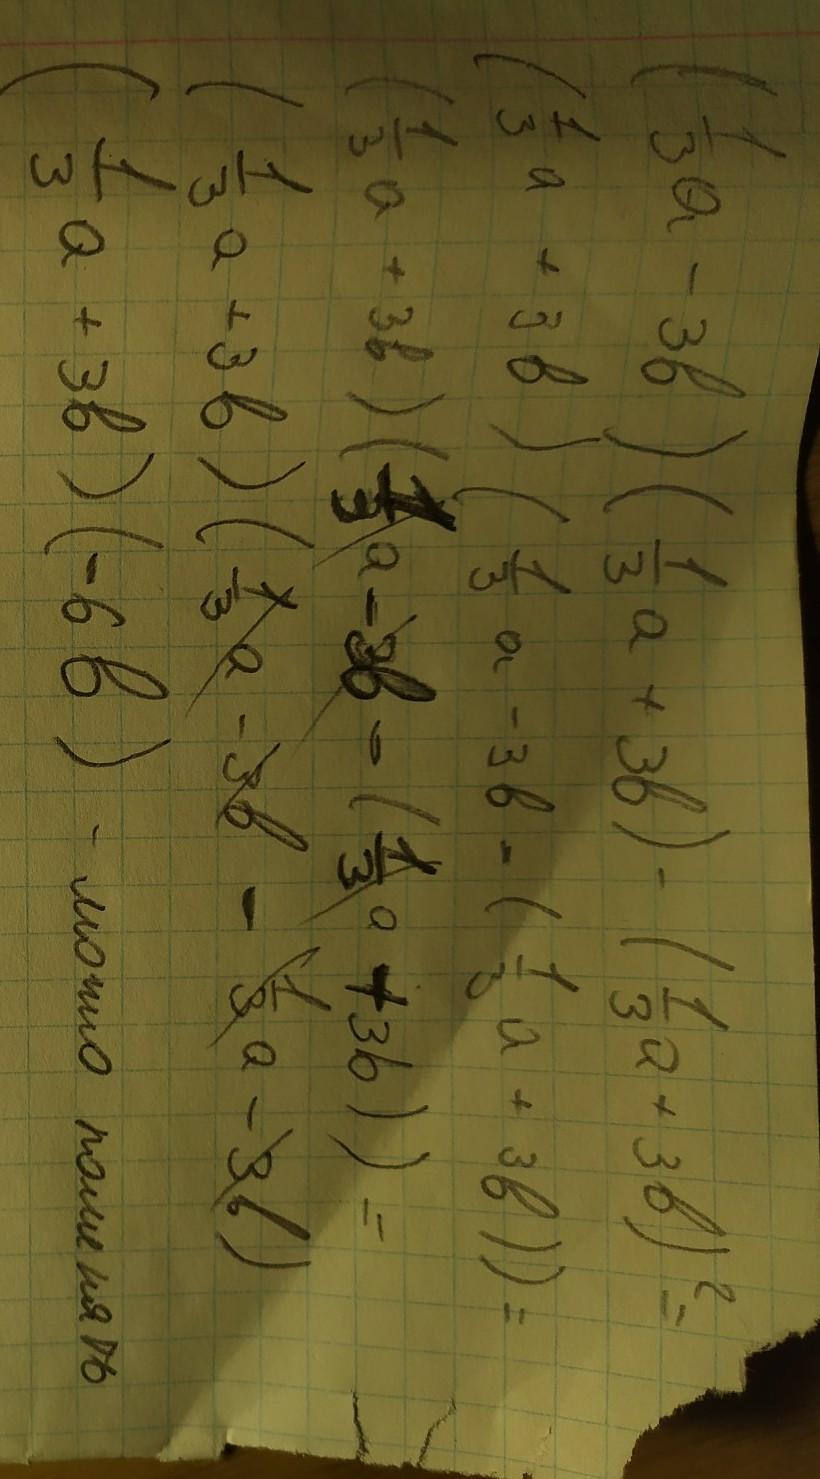 (1/3 a - 3b)(1/3 a + 3b) - (1/3 a + 3b)² =
(1/3 a + 3b)(1/3 a - 3b - (1/3 a + 3b)) =
(1/3 a + 3b)(1/3 a - 3b - (1/3 a + 3b)) =
(1/3 a + 3b)(1/3 a - 3b - 1/3 a - 3b)
(1/3 a + 3b)(-6b) -